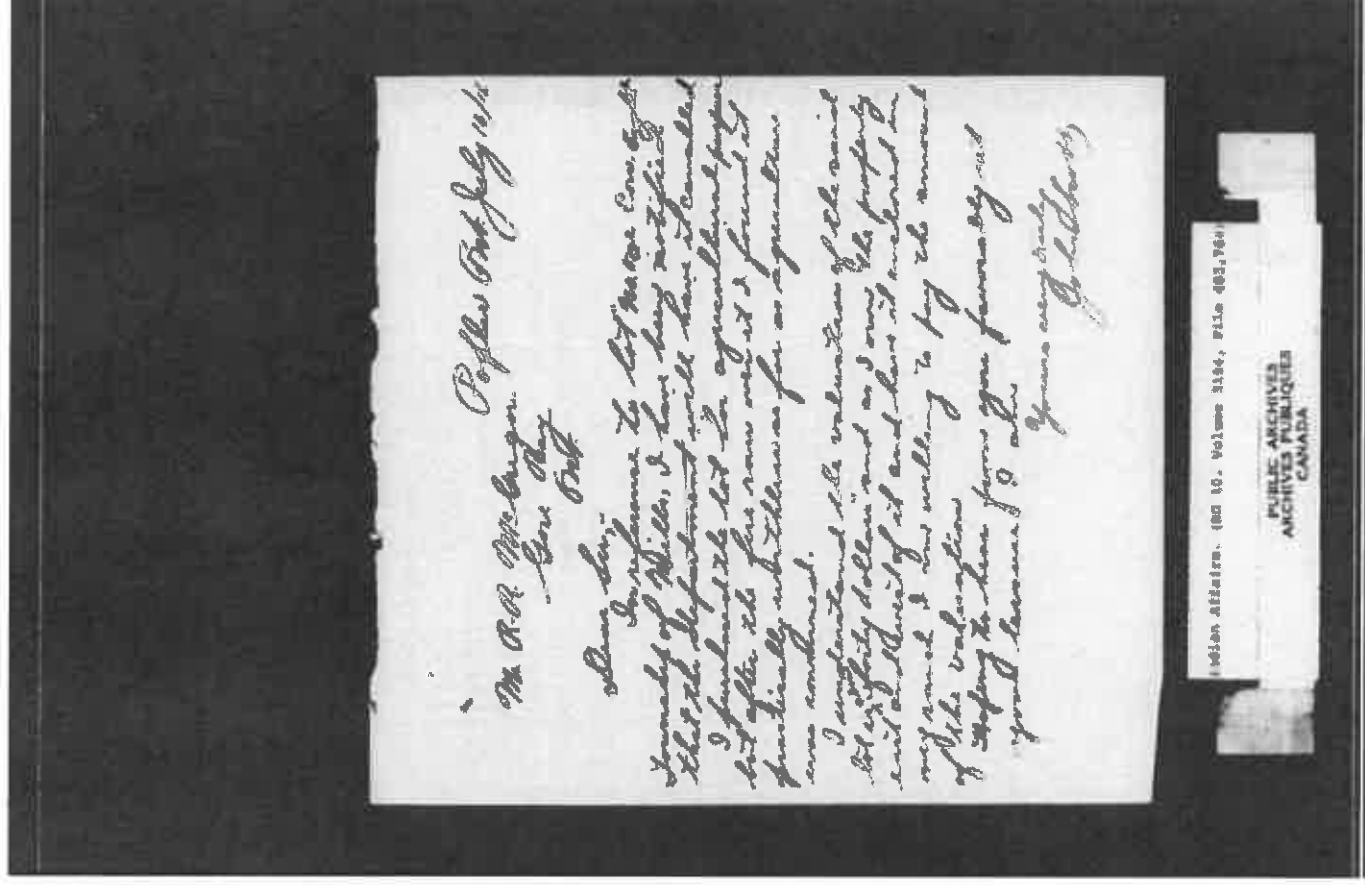 Ont July
Mr R.R. McGregor
Gore Bay
Ont.
Dear Sir,
In reference to lot No Con.
Township of Mills, I have been notified
that the department will have it cancelled
I purchased the lot for agricultural purposes
but after the fire ran over it I found it
practically worthless as far as agriculture
was concerned.
I understand the valuation of the said
lot is forty dollars and as I own the property
east and west of it and have it enclosed in
my ranch I am willing to pay the amount
of the valuation
Hoping to hear from you
I am
Yours very truly
Indian Affairs. (RG 10, Volume 3194, File 463,
PUBLIC ARCHIVES
ARCHIVES PUBLIQUES
CANADA